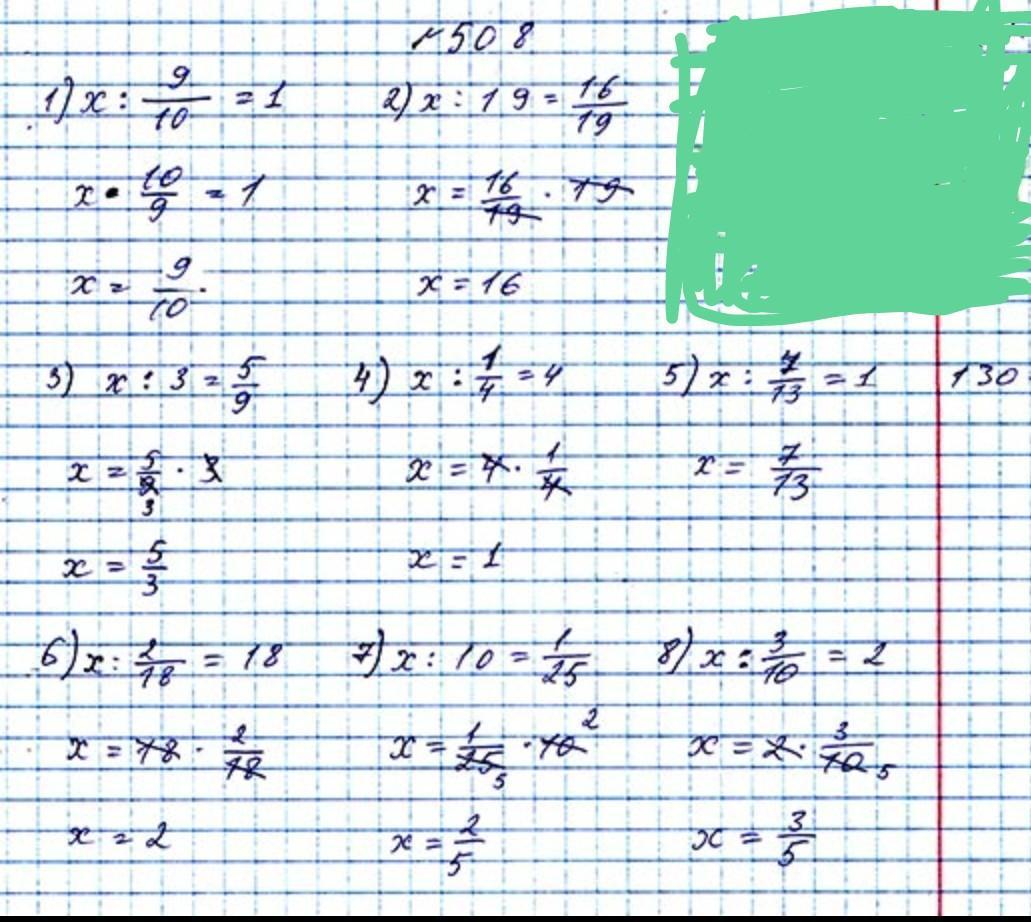 №508
1) x : 9/10 = 1
x • 10/9 = 1
x = 9/10.
2) x : 19 = 16/19
x = 16/19 · 19
x = 16
3) x : 3 = 5/9
x = 5/9 3 · 3
x = 5/3
4) x : 1/4 = 4
x = 4 · 1/4
x = 1
5) x : 7/13 = 1
x = 7/13
130
6) x : 2/18 = 18
x = 18 · 2/18
x = 2
7) x : 10 = 1/25
x = 1/25 5 · 10 2
x = 2/5
8) x : 3/10 = 2
x = 2 · 3/10 5
x = 3/5